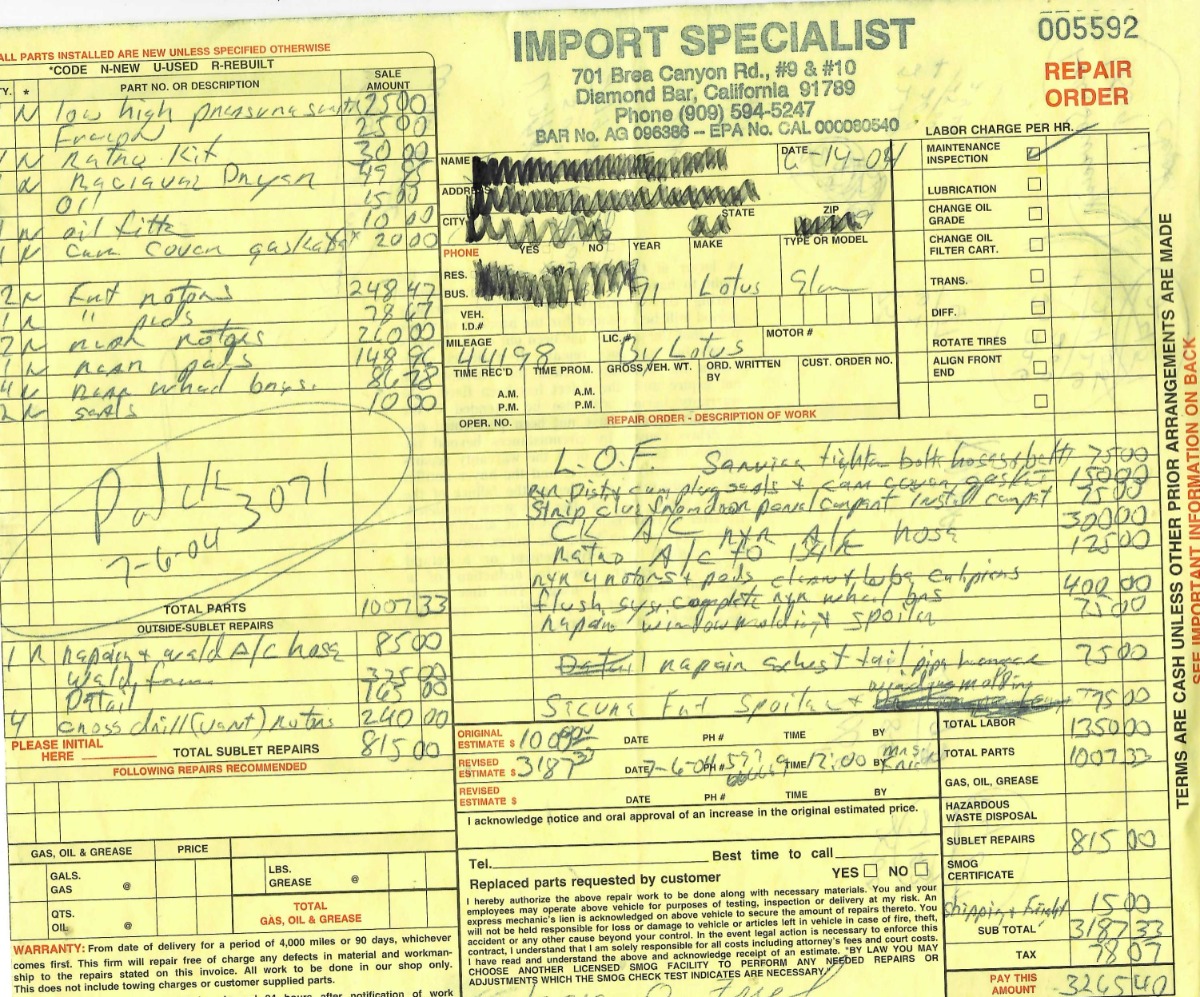 ALL PARTS INSTALLED ARE NEW UNLESS SPECIFIED OTHERWISE
*CODE N-NEW U-USED R-REBUILT
TY. * PART NO. OR DESCRIPTION SALE AMOUNT
N low high pressure 25 00
Freon 25 00
1 N Retro Kit 30 00
N Dryer 49 95
Oil 15 00
1 N oil filter 10 00
1 N Cam Cover gasket 20 00
2 N Frnt rotors 248 47
1 N " pads 78 67
2 N rear rotors 260 00
1 N rear pads 148 96
4 N rear wheel brgs. 86 28
2 N seals 10 00
Pd ck 3071
7-6-04
TOTAL PARTS 1007 33
OUTSIDE-SUBLET REPAIRS
1 R repair & weld A/C hose 85 00
Weld 325 00
Detail 165 00
4 cross drill (vent) rotors 240 00
PLEASE INITIAL HERE TOTAL SUBLET REPAIRS 815 00
FOLLOWING REPAIRS RECOMMENDED
GAS, OIL & GREASE PRICE
GALS. GAS @
LBS. GREASE @
QTS. OIL @
TOTAL GAS, OIL & GREASE
WARRANTY: From date of delivery for a period of 4,000 miles or 90 days, whichever
comes first. This firm will repair free of charge any defects in material and workman-
ship to the repairs stated on this invoice. All work to be done in our shop only.
This does not include towing charges or customer supplied parts.
24 hours after notification of work
IMPORT SPECIALIST
701 Brea Canyon Rd., #9 & #10
Diamond Bar, California 91789
Phone (909) 594-5247
BAR No. AG 096386 – EPA No. CAL 000080540
005592
REPAIR ORDER
NAME DATE 6-14-04
ADDRESS
CITY STATE ZIP
PHONE YES NO YEAR MAKE TYPE OR MODEL
RES.
BUS. 71 Lotus Elan
VEH. I.D.#
MILEAGE LIC.# MOTOR #
44198 By Lotus
TIME REC'D TIME PROM. GROSS VEH. WT. ORD. WRITTEN BY CUST. ORDER NO.
A.M. A.M.
P.M. P.M.
LABOR CHARGE PER HR.
MAINTENANCE INSPECTION
LUBRICATION
CHANGE OIL GRADE
CHANGE OIL FILTER CART.
TRANS.
DIFF.
ROTATE TIRES
ALIGN FRONT END
OPER. NO. REPAIR ORDER - DESCRIPTION OF WORK
L.O.F. Service tighten bolts hoses & belts 75 00
R&R Disty cam plug seals & cam cover gasket 150 00
Strip glue from door panel carpet install carpet 75 00
CK A/C R&R A/C hose 300 00
Retro A/C to 134R 125 00
R&R 4 rotors & pads clean & lube calipers
flush sys. complete R&R wheel brgs 400 00
repair window molding & spoiler 75 00
repair exhest tail pipe 75 00
window molding
Secure Frnt Spoiler & 75 00
ORIGINAL ESTIMATE $ DATE PH # TIME BY
REVISED ESTIMATE $ 3187 33 DATE 7-6-04 PH # 597 TIME 12:00 BY Mrs.
REVISED ESTIMATE $ DATE PH # TIME BY
I acknowledge notice and oral approval of an increase in the original estimated price.
Tel. Best time to call
Replaced parts requested by customer YES NO
I hereby authorize the above repair work to be done along with necessary materials. You and your
employees may operate above vehicle for purposes of testing, inspection or delivery at my risk. An
express mechanic's lien is acknowledged on above vehicle to secure the amount of repairs thereto. You
will not be held responsible for loss or damage to vehicle or articles left in vehicle in case of fire, theft,
accident or any other cause beyond your control. In the event legal action is necessary to enforce this
contract, I understand that I am solely responsible for all costs including attorney's fees and court costs.
I have read and understand the above and acknowledge receipt of an estimate. "BY LAW YOU MAY
CHOOSE ANOTHER LICENSED SMOG FACILITY TO PERFORM ANY NEEDED REPAIRS OR
ADJUSTMENTS WHICH THE SMOG CHECK TEST INDICATES ARE NECESSARY."
TOTAL LABOR 1350 00
TOTAL PARTS 1007 33
GAS, OIL, GREASE
HAZARDOUS WASTE DISPOSAL
SUBLET REPAIRS 815 00
SMOG CERTIFICATE
Shipping & Freight 15 00
SUB TOTAL 3187 33
TAX 78 07
PAY THIS AMOUNT 3265 40
TERMS ARE CASH UNLESS OTHER PRIOR ARRANGEMENTS ARE MADE
SEE IMPORTANT INFORMATION ON BACK